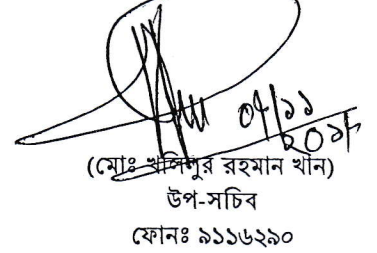 ০৮/১১
২০১৮
(মোঃ খলিলুর রহমান খান)
উপ-সচিব
ফোনঃ ৯১১৬২৯০